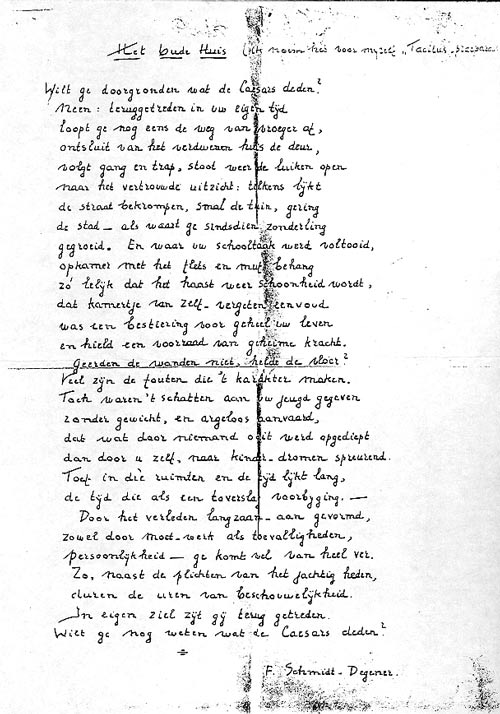 Het oude Huis (ik noem het voor mijzelf „Tacitus-
Wilt ge doorgronden wat de Caesars deden?
Neen: teruggetreden in uw eigen tijd
loopt ge nog eens de weg van vroeger af,
ontsluit van het verdwenen huis de deur,
volgt gang en trap, stoot weer de luiken open
naar het vertrouwde uitzicht: telkens lijkt
de straat bekrompen, smal de tuin, gering
de stad – als waart ge sindsdien zonderling
gegroeid. En waar uw schooltaak werd voltooid,
opkamer met het flets en muf behang
zó lelijk dat het haast weer schoonheid wordt,
dat kamertje van zelf-vergeten eenvoud
was een bestiering voor geheel uw leven
en hield een voorraad van geheime kracht.
Geerden de wanden niet, helde de vloer?
Veel zijn de fouten die 't karakter maken.
Toch waren 't schatten aan uw jeugd gegeven
zonder gewicht, en argeloos aanvaard,
dat wat door niemand ooit werd opgediept
dan door u zelf, naar kinder-dromen speurend.
Toef in die ruimten en de tijd lijkt lang,
de tijd die als een toverslag voorbyging. —
Door het verleden langzaam-aan gevormd,
zowel door moet-werk als toevalligheden,
persoonlijkheid — ge komt wel van heel ver.
Zo, naast de plichten van het jachtig heden,
duren de uren van beschouwelijkheid.
In eigen ziel zijt gij terug getreden.
Wilt ge nog weten wat de Caesars deden?
F. Schmidt-Degener.